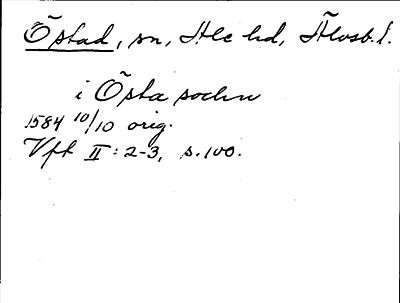 Östad, sn, Ale hd, Älvsb. l.
i Östa sochn
1584 10/10 orig.
Vft II: 2-3, s. 100.